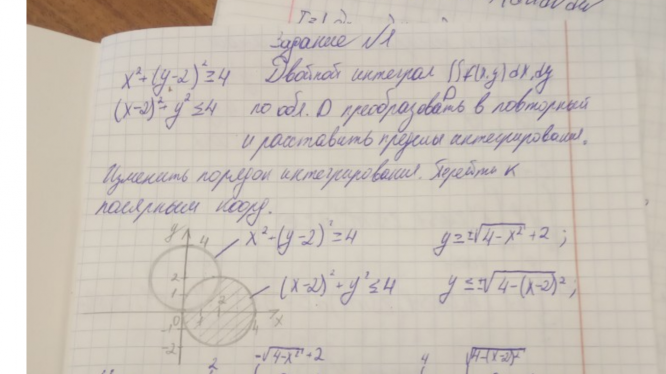 Задание №1
x² + (y-2)² ≥ 4 Двойной интеграл ∬f(x,y)dx,dy
D
(x-2)² + y² ≤ 4 по обл. D преобразовать в повторный
и расставить пределы интегрирования.
Изменить порядок интегрирования. Перейти к
полярным коорд.
y 4 x²-(y-2)²=4 y≥±√4-x²+2;
2
1 (x-2)²+y²≤4 y≤±√4-(x-2)²;
0 2 4 x
-1
-2
2 -√4-x²+2 4 √4-(x-2)²